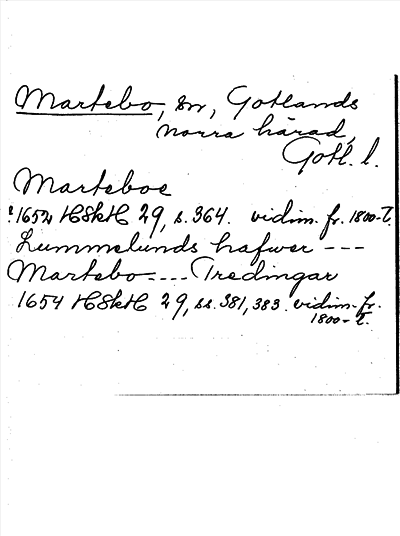 Martebo, sn, Gotlands
norra härad,
Gotl. l.
Marteboe
1654 HSkH 29, s. 364. vidim. fr. 1800-t.
Lummelunds hafwer ---
Martebo --- Tredingar
1654 HSkH 29, ss. 381, 383. vidim. fr.
1800-t.